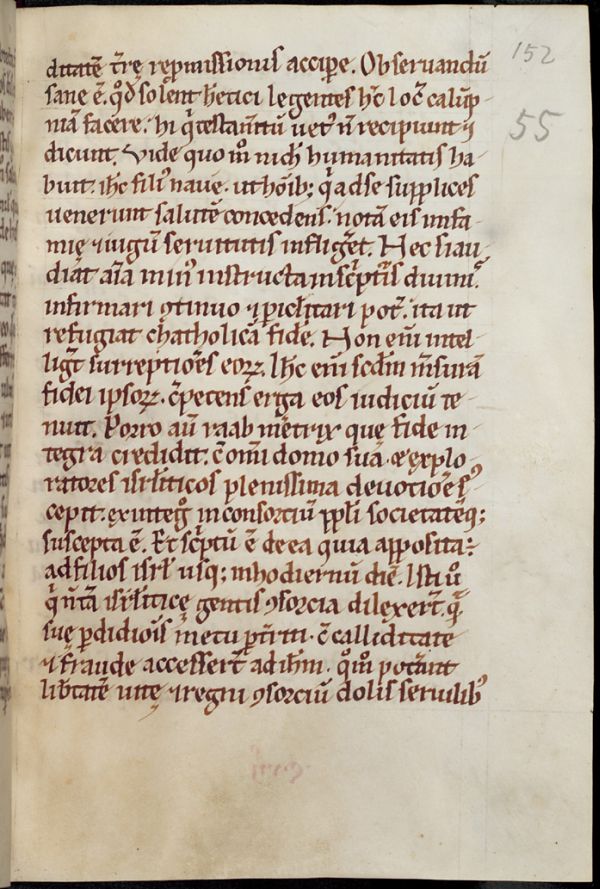 152
55
ditatē t̄rę rep̄missionis accipe. Obseruandū
sane ē. qd̄ solent h̄etici legentes h̄c locū calūp
niā facere. hi q̄ testam̄tū uet' n̄ recipiunt ⁊
dicunt. Vide quo m̄ nichil humanitatis ha
buit. ih̄c fili' naue. ut hoīb; q̄ ad se supplices
uenerunt salutē concedens. notā eis infa
mię ⁊ iugū seruitutis infligeret. Hec si au
diat aīa min' instructa in sc̄pturis diuinis.
infirmari ꝯtinuo ⁊ piclitari pot̄. ita ut
refugiat chatholicā fidē. Non eīm intel
ligit surreptiōes eoꝝ. Ih̄c eīm sc̄dm m̄surā
fidei ipsoꝝ. c̄petens erga eos iudiciū te
nuit. Porro aū raab m̄etrix que fide in
tegra credidit. c̄ om̄i domo sua. ⁊ explo
ratores isrł̄iticos plenissima deuotiōe sus
cepit. ex integro in consortiū ppli societatēq;
suscepta ē. Et sc̄ptū ē de ea quia apposita ē
ad filios isrł usq; in hodiernū diē. Isti ū
q̄ n̄ tā isrł̄iticę gentis ꝯsorcia dilexert̄. qm̄
suę pdidiōis metu pt̄riti. c̄ calliditate
⁊ fraude accesserūt ad ih̄m. qm̄o pot̄ant
lib̄tatē uitę ⁊ regni ꝯsorciū dolis seruilib'